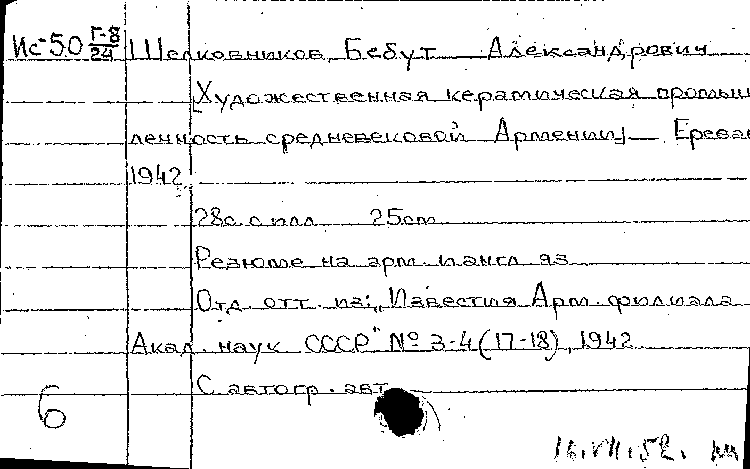 Ис-50 Г-8/24 Шелковников, Бебут Александрович
[Художественная керамическая промыш
ленность средневековой Армении] Ерева
1942.
28с. с илл. 25 см
Резюме на арм. и англ. яз.
Отд. отт. из: „Известия Арм. филиала
Акад. наук СССР" № 3-4 (17-18), 1942
С автогр. авт.
6
16.VII.52.